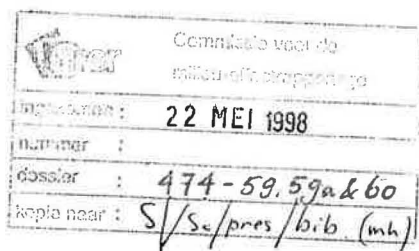 mer
Commissie voor de
milieu-effectrapportage
ingekomen : 22 MEI 1998
nummer :
dossier : 474-59.59a & 60
kopie naar : S/Sc/pres/bib. (mh)